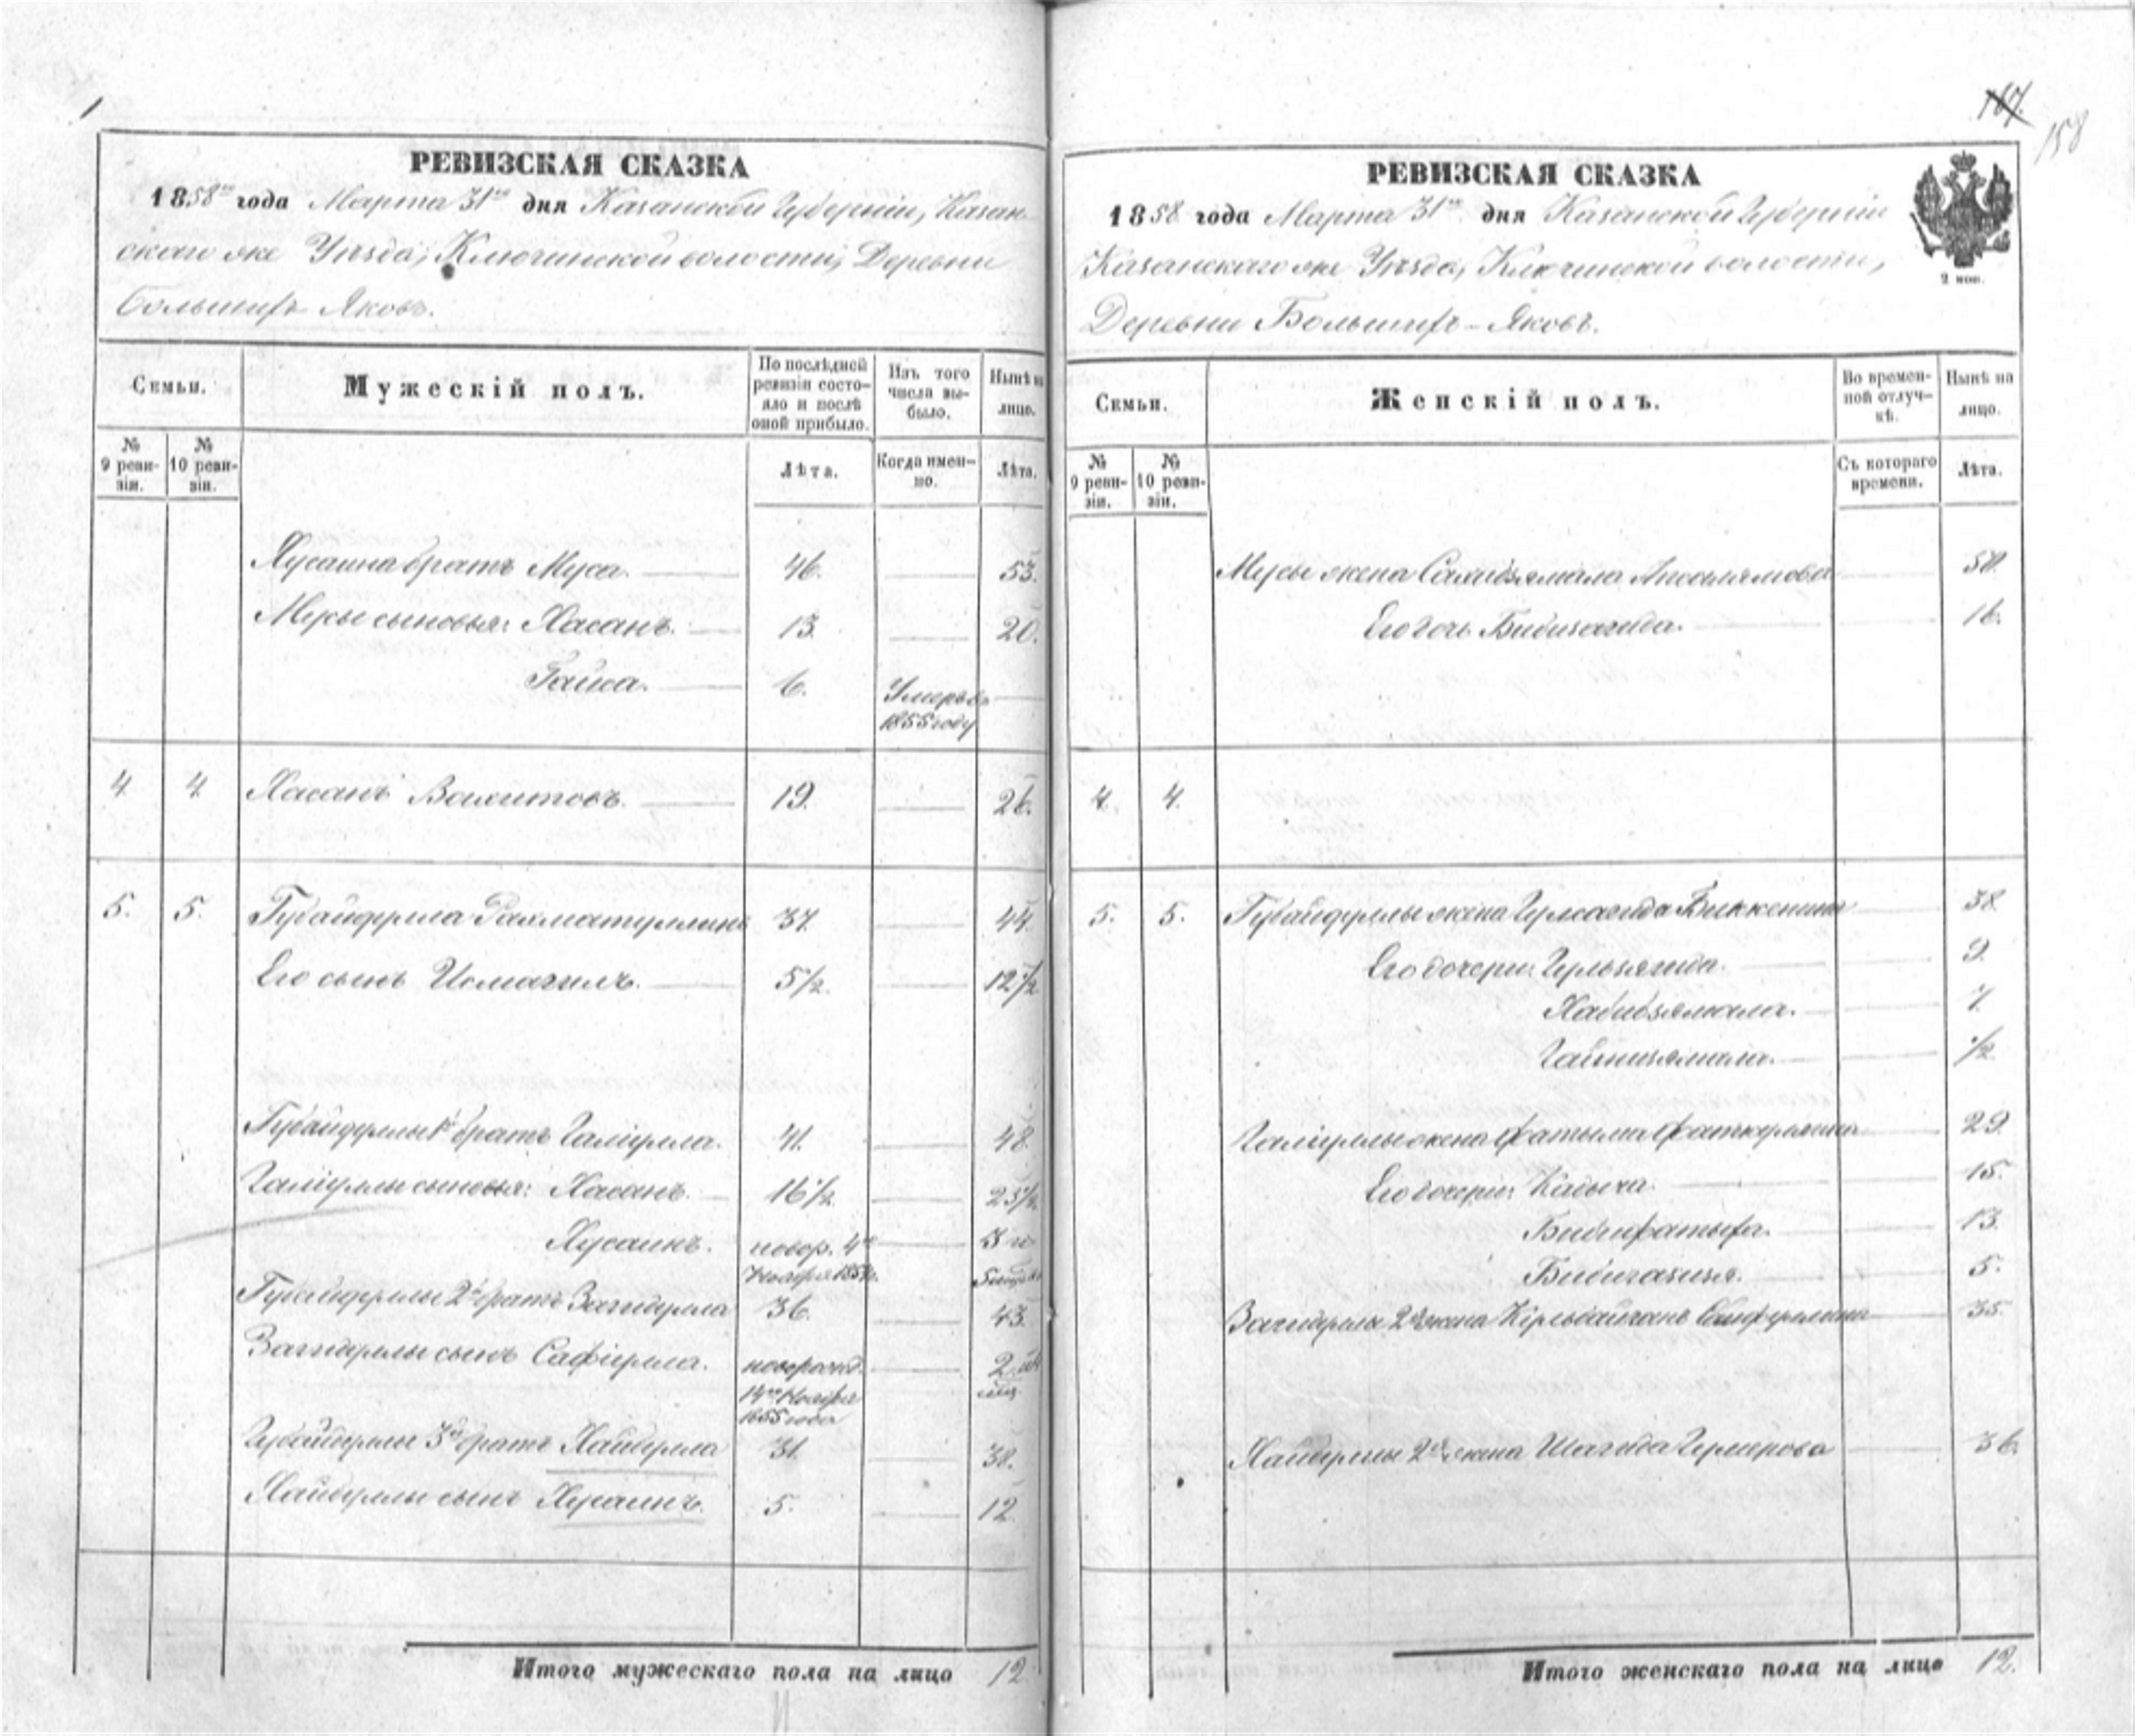 РЕВИЗСКАЯ СКАЗКА
1858го года Марта 31го дня Казанской Губерніи, Казан-
скаго же Уѣзда, Ключинской волости, Деревни
Большихъ Яковъ.
Семьи.
Мужескій полъ.
По послѣдней ревизіи состо-яло и послѣ оной прибыло.
Изъ того числа вы-было.
Нынѣ на лицо.
№ 9 реви-зіи.
№ 10 реви-зіи.
Лѣта.
Когда имен-но.
Лѣта.
Хусаина братъ Муса. 46. 53.
Мусы сыновья: Хасанъ. 13. 20.
Гайса. 6. Умеръ въ
1855 году
4 4 Хасанъ Вахитовъ. 19. 26.
5. 5. Губайдулла Рахматуллинъ 37. 44.
Его сынъ Исмагилъ. 5½. 12½.
Губайдуллы 1й братъ Галіулла. 41. 48.
Галіуллы сыновья: Хасанъ. 16½. 23½.
Хусаинъ. новор. 4го 3 г.
Ноября
Губайдуллы 2й братъ Загидулла 36. 43.
Загидуллы сынъ Сафіулла. новорожд. 2
14го Ноября
1855 года
Губайдуллы 3й братъ Хайдулла 31. 38.
Хайдуллы сынъ Хусаинъ. 5. 12.
Итого мужескаго пола на лицо 12
167.
158
РЕВИЗСКАЯ СКАЗКА
1858 года Марта 31го дня Казанской Губерніи
Казанскаго же Уѣзда, Ключинской волости,
Деревни Большихъ-Яковъ.
2 коп.
Семьи.
Женскій полъ.
Во времен-ной отлуч-кѣ.
Нынѣ на лицо.
№ 9 реви-зіи.
№ 10 реви-зіи.
Съ котораго времени.
Лѣта.
Мусы жена 50.
Его дочь Бибизагида. 16.
4. 4.
5. 5. Губайдуллы жена 38.
Его дочери: Гульзягида. 9.
Хабибзямала. 7.
Гайнизямала. ½
Галіуллы жена Фатыма 29.
Его дочери: Кадыча. 15.
Бибифатыха. 13.
Бибигазиза. 5.
Загидуллы 2я жена 35.
Хайдуллы 2я жена Шагида 36.
Итого женскаго пола на лицо 12.